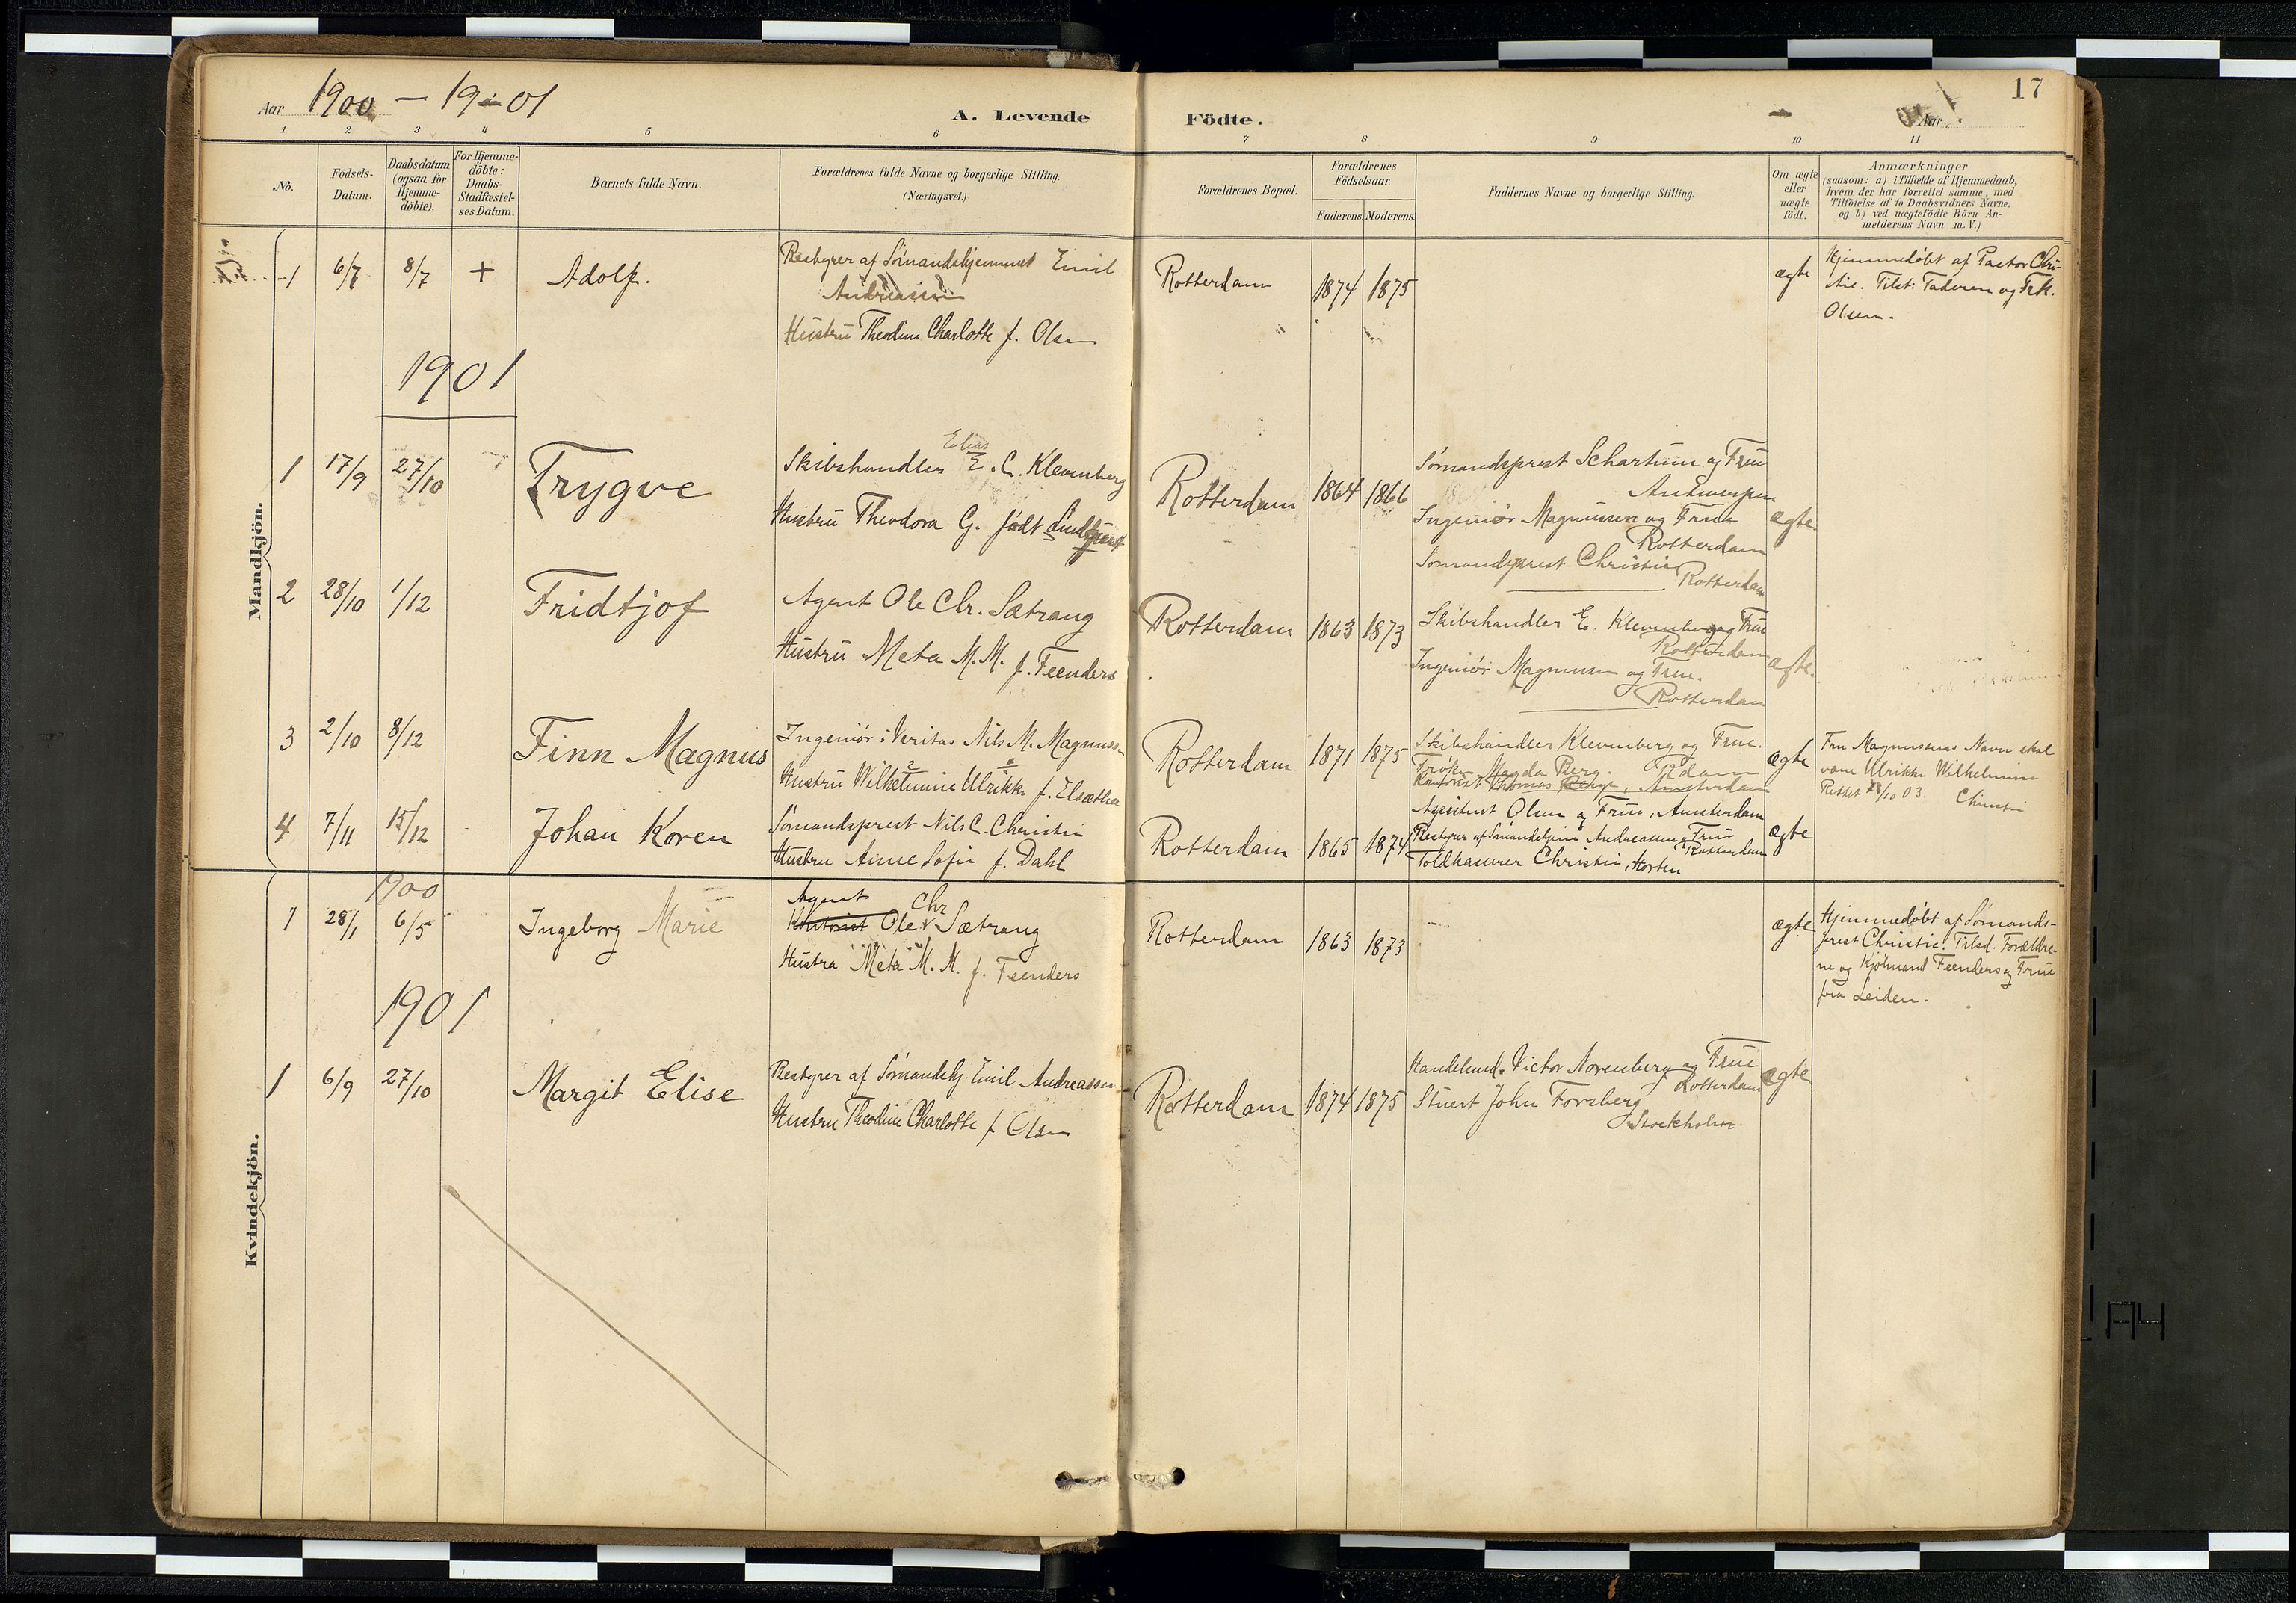 17
Aar 1900 - 19-01
A. Levende Födte.
Aar
1 2 3 4 5 6 7 8 9 10 11
No.
Födsels-Datum.
Daabsdatum (ogsaa for Hjemme-döbte).
For Hjemme-döbte: Daabs-Stadfæstel-ses Datum.
Barnets fulde Navn.
Forældrenes fulde Navne og borgerlige Stilling.
(Næringsvei.)
Forældrenes Bopæl.
Forældrenes Födselsaar.
Faderens. Moderens.
Faddernes Navne og borgerlige Stilling.
Om ægte eller uægte födt.
Anmærkninger
(saasom: a) i Tilfælde af Hjemmedaab,
hvem der har forrettet samme, med
Tilföielse af to Daabsvidners Navne,
og b) ved uægtefödte Börn An-
melderens Navn m. V.)
Mandkjön.
1 6/7 8/7 + Adolf.
Bestyrer af Sömandshjemmet Emil
Andreassen
Hustru Theodine Charlotte f. Olsen
Rotterdam 1874 1875
ægte
Hjemmedöbt af Pastor Chri-
stie. Tilst: Faderen og Frk.
Olsen.
1901
1 17/9 27/10 Trygve
Elias
Skibshandler E. C. Klevenberg
Hustru Theodora G. födt
Rotterdam 1864 1866
Sömandsprest Schartum og Frue
Antwerpen
Ingeniör Magnussen og Frue
Rotterdam
Sömandsprest Christie
Rotterdam
ægte
2 28/10 1/12 Fridtjof
Agent Ole Chr. Sætrang
Hustru Meta M. M. f. Feenders
Rotterdam 1863 1873
Skibshandler E. Klevenberg og Frue
Rotterdam
Ingeniör Magnussen og Frue.
Rotterdam
ægte.
3 2/10 8/12 Finn Magnus
Ingeniör i Veritas Nils M. Magnussen
Hustru Wilhelmine Ulrikke f.
Rotterdam 1871 1875
Skibshandler Klevenberg og Frue.
Fröken Magda Berg. R.dam
Kontorist Thomas Amsterdam
ægte
Fru Magnussens Navn skal
være Ulrikke Wilhelmine
Rettet 28/10 03. Christie
4 7/11 15/12 Johan Koren
Sömandsprest Nils C. Christie
Hustru Anne Sofie f. Dahl
Rotterdam 1865 1874
Assistent Olsen og Frue, Amsterdam
Bestyrer af Sömandshjem Andreassen og Frue Rotterdam
Toldkasserer Christie, Horten
ægte
Kvindekjön.
1900
1 28/1 6/5 Ingeborg Marie
Agent Chr
Kontorist Ole v Sætrang
Hustru Meta M. M. f. Feenders
Rotterdam 1863 1873
ægte
Hjemmedöbt af Sömands-
prest Christie. Tilst. Forældre-
ne og Kjöbmand Feenders og Frue
fra Leiden.
1901
1 6/9 27/10 Margit Elise
Bestyrer af Sömandshj. Emil Andreassen
Hustru Theodine Charlotte f Olsen
Rotterdam 1874 1875
Handelsmd. Victor Norenberg og Frue
Rotterdam
Stuert John Forsberg
Stockholm
ægte